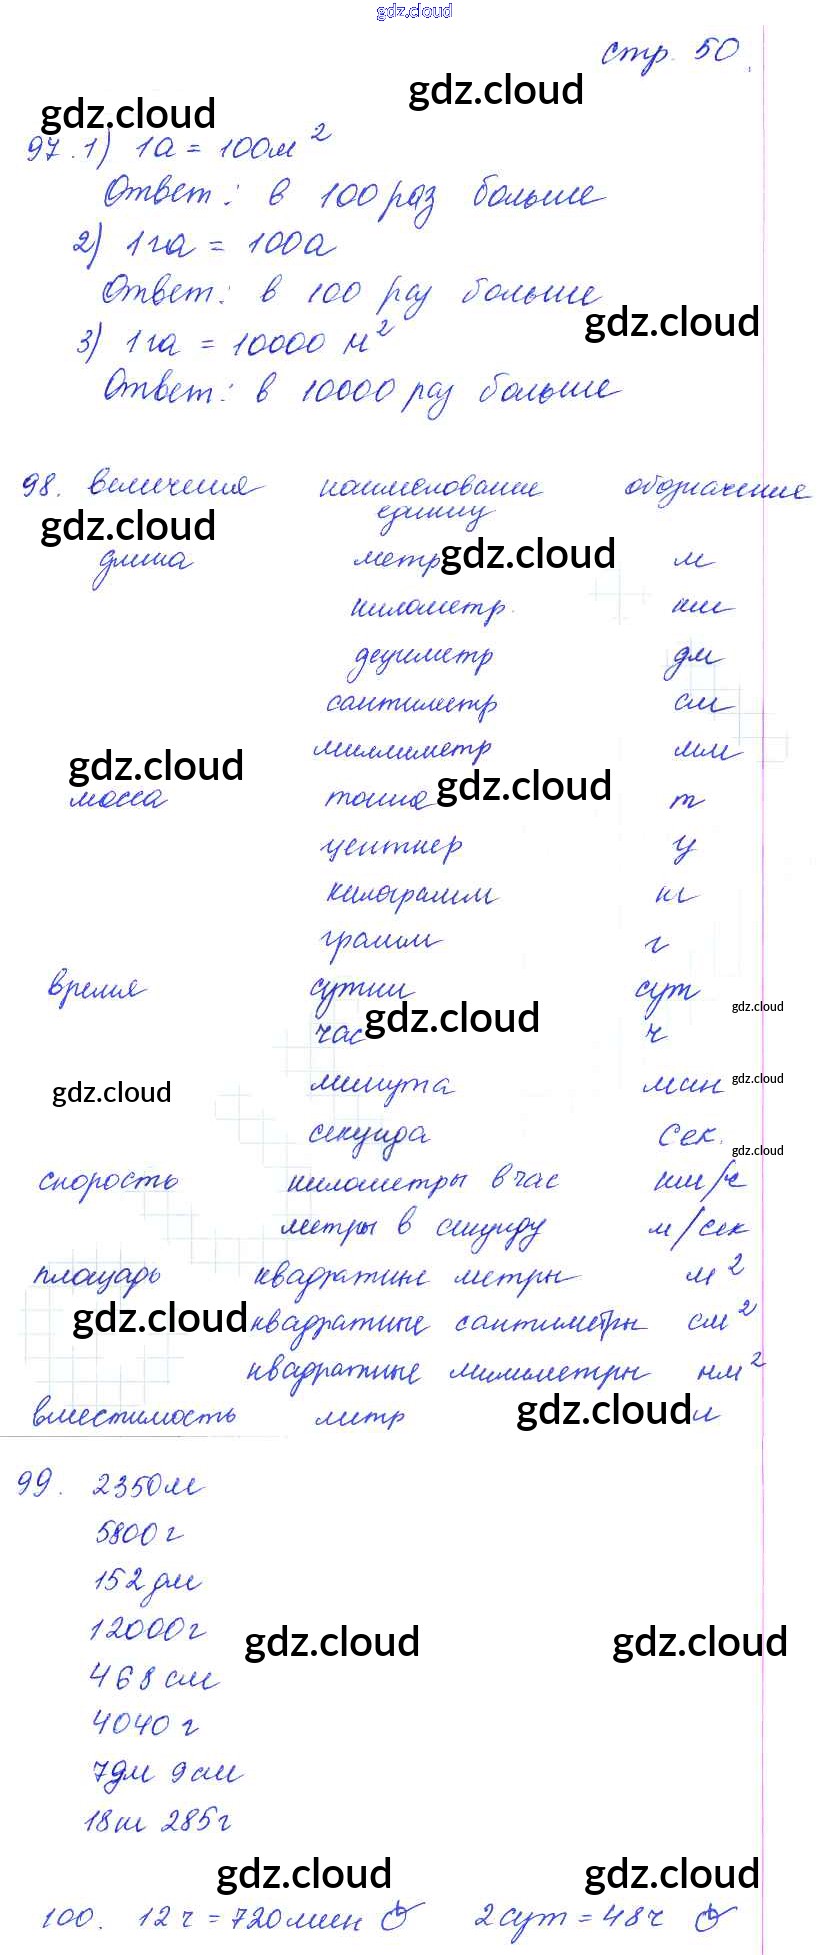 gdz.cloud
стр. 50
gdz.cloud
gdz.cloud
97. 1) 1а = 100м²
Ответ: в 100 раз больше
2) 1га = 100а
Ответ: в 100 раз больше
gdz.cloud
3) 1га = 10000 м²
Ответ: в 10000 раз больше
98. величения наименование обозначение
единиц
gdz.cloud
gdz.cloud
длина метр м
километр км
дециметр дм
сантиметр см
миллиметр мм
gdz.cloud
gdz.cloud
масса тонна т
центнер ц
килограмм кг
грамм г
время сутки сут
gdz.cloud
gdz.cloud
час ч
gdz.cloud
gdz.cloud
минута мин
секунда сек.
gdz.cloud
скорость километры в час км/ч
метры в секунду м/сек
площадь квадратные метры м²
gdz.cloud
квадратные сантиметры см²
квадратные миллиметры мм²
вместимость литр л
gdz.cloud
99. 2350м
5800г
152дм
12000г
gdz.cloud
gdz.cloud
468см
4040г
7дм 9см
18кг 285г
gdz.cloud
gdz.cloud
100. 12ч = 720мин 2сут = 48ч